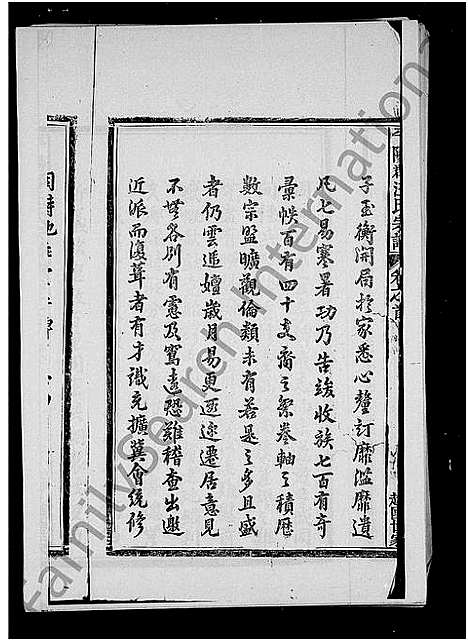 子玉衡開局於家悉心釐訂靡濫靡遺
凡七易寒暑功乃告竣收族七百有奇
彙帙百有四十支裔之繁卷軸之積歷
數宗盟曠觀倫類未有若是之多且盛
者仍雲遞嬗歲月易更遐邇遷居意見
不無各別有憲及騖遠恐難稽查出邀
近派而復葺者有才識充擴冀會統修
FamilySearch International